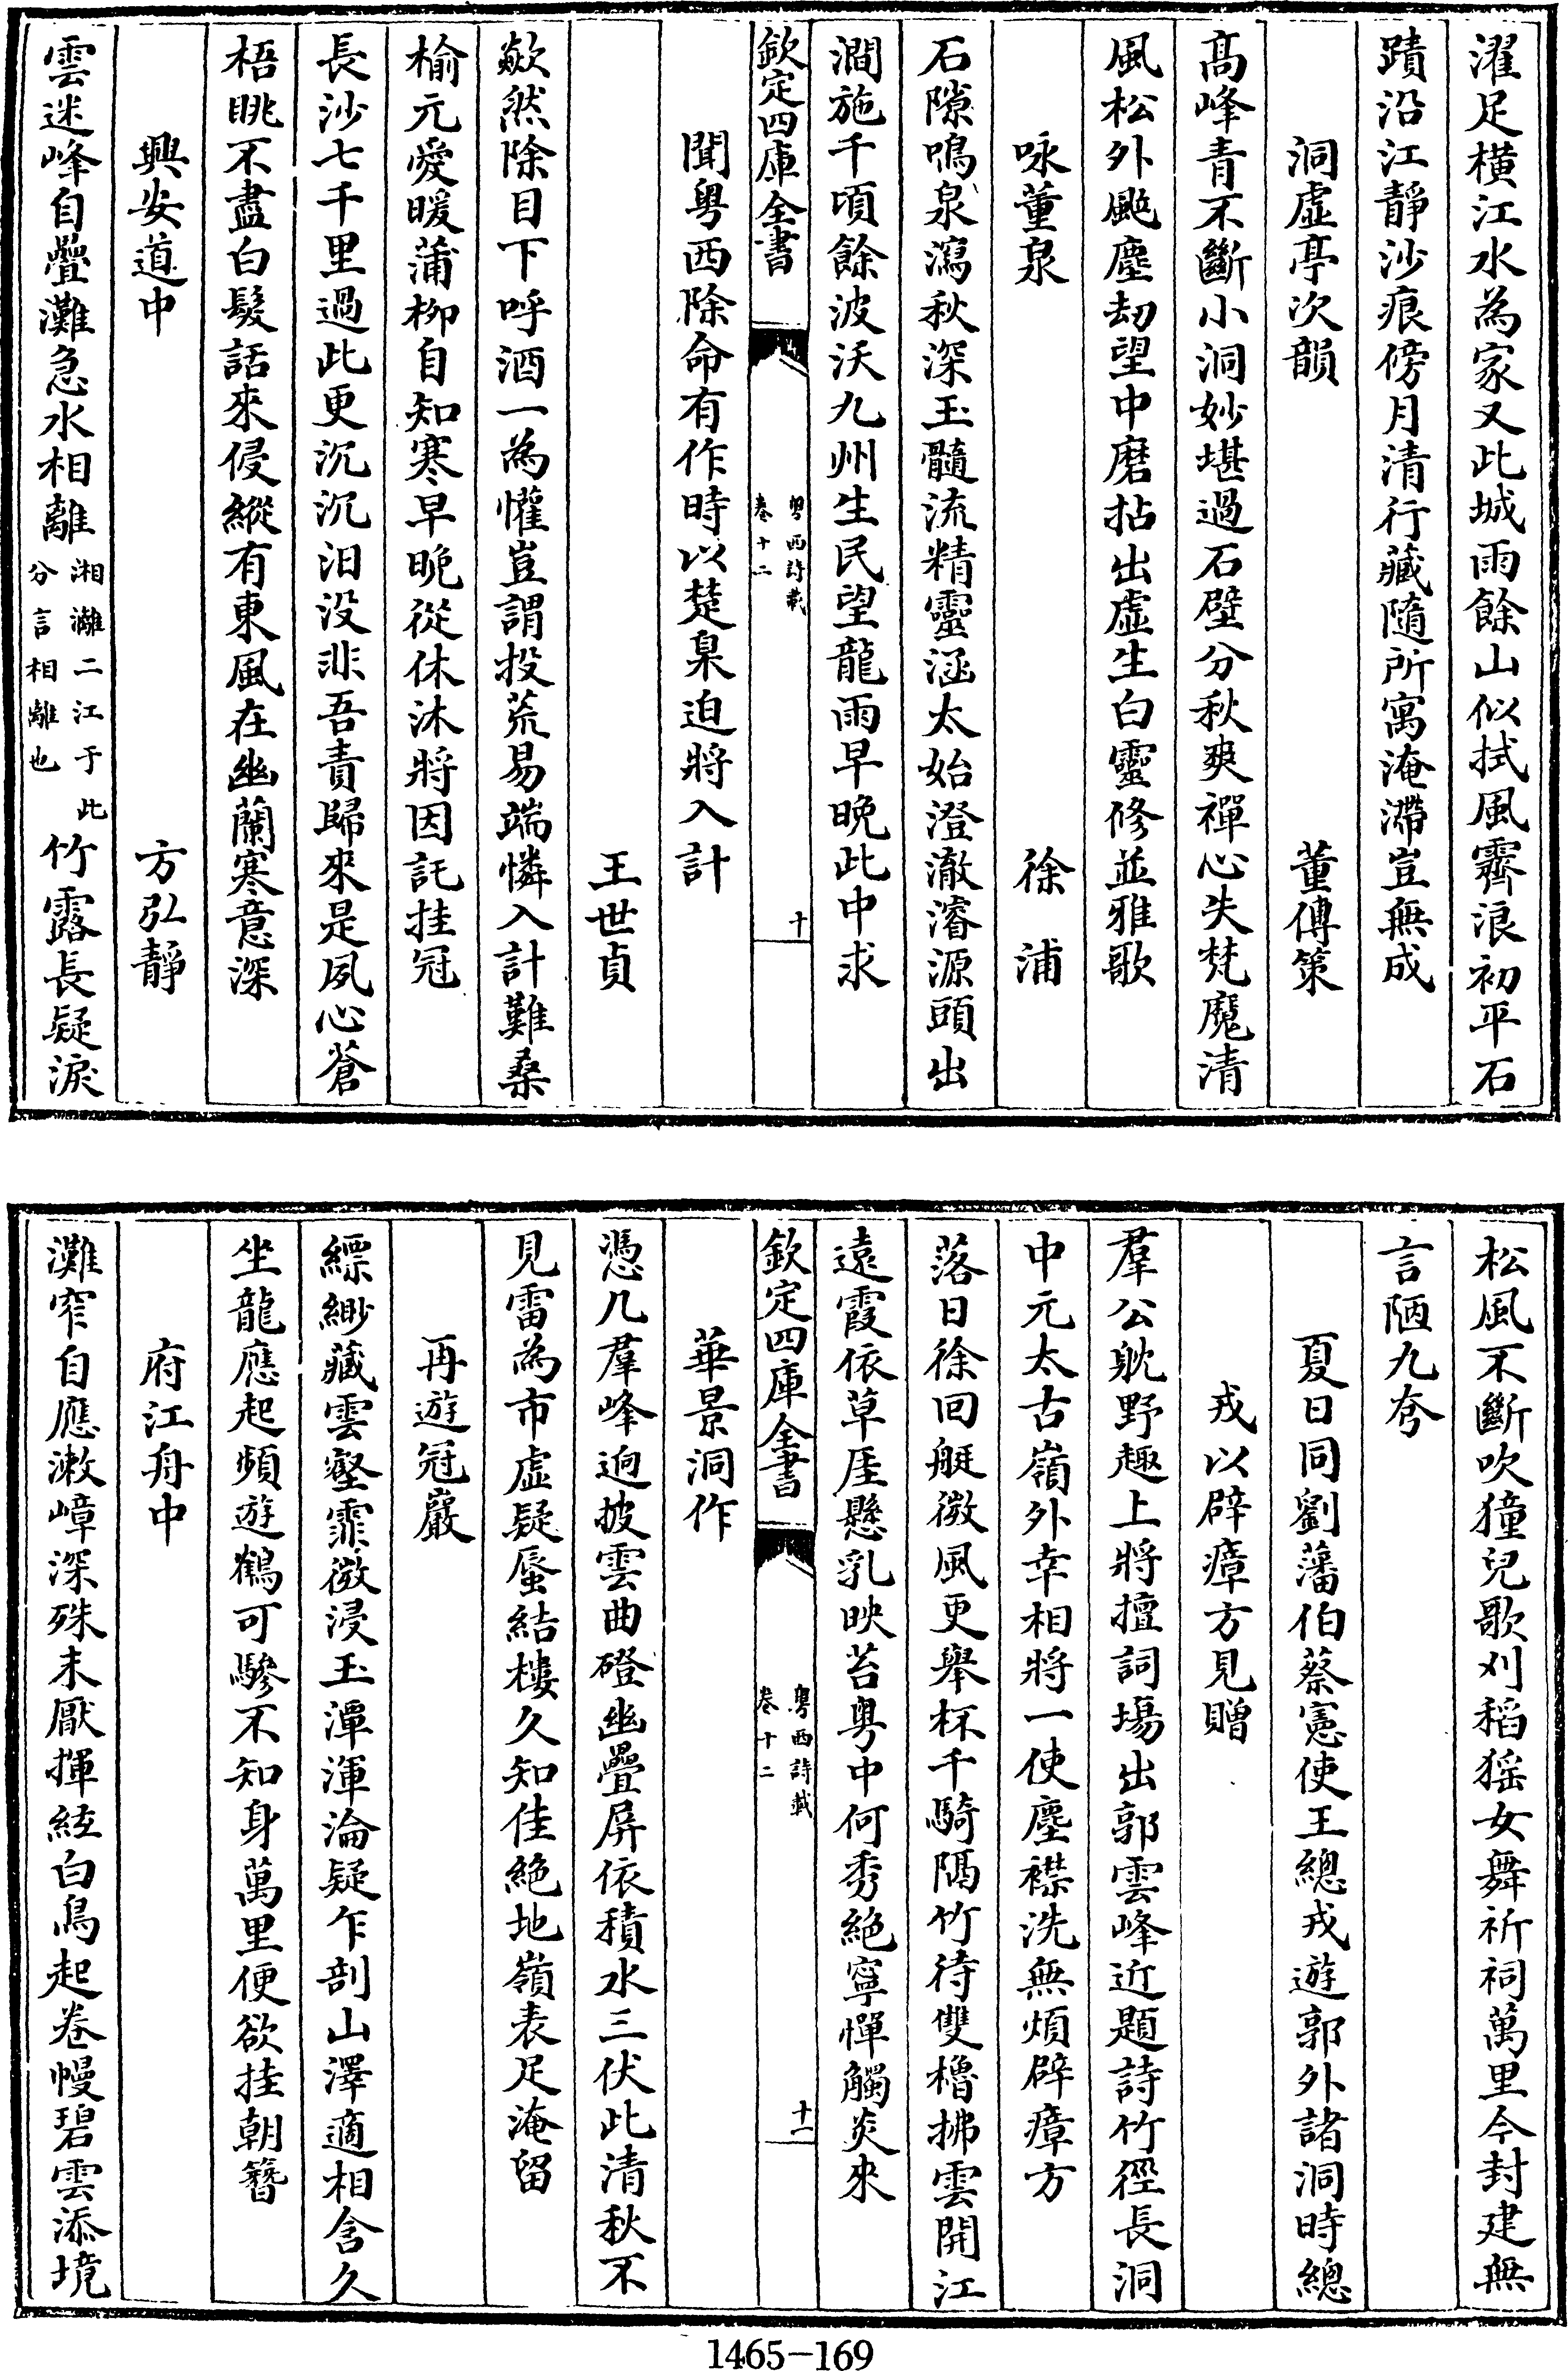 濯足横江水為家又此城雨餘山似拭風霽浪初平石
蹟沿江靜沙痕傍月清行藏隨所寓淹滯豈無成
洞虛亭次韻 董傳策
高峰青不斷小洞妙堪過石壁分秋爽禪心失梵魔清
風松外颭塵刼望中磨拈出虛生白靈修並雅歌
咏董泉 徐浦
石隙鳴泉瀉秋深玉髓流精靈涵太始澄澈濬源頭出
澗施千頃餘波沃九州生民望龍雨早晚此中求
欽定四庫全書 粤西詩載 卷十二 十
聞粤西除命有作時以楚臬迫將入計
王世貞
歘然除目下呼酒一為懽豈謂投荒易端憐入計難桑
榆元愛暖蒲栁自知寒早晩從休沐將因託挂冠
長沙七千里過此更沉沉汨没非吾責歸來是夙心蒼
梧眺不盡白髮話來侵縱有東風在幽蘭寒意深
興安道中 方弘靜
雲迷峰自疊灘急水相離湘灕二江于此分言相離也竹露長疑淚
松風不斷吹獞兒歌刈稻猺女舞祈祠萬里今封建無
言陋九夸
夏日同劉藩伯蔡憲使王總戎遊郭外諸洞時總
戎以辟瘴方見贈
羣公躭野趣上將擅詞塲出郭雲峰近題詩竹徑長洞
中元太古嶺外幸相將一使塵襟洗無煩辟瘴方
落日徐回艇微風更舉杯千騎隔竹待雙櫓拂雲開江
遠霞依草厓懸乳映苔粤中何秀絶寧憚觸炎來
欽定四庫全書 粤西詩載 卷十二 十一
華景洞作
憑几羣峰逈披雲曲磴幽疊屏依積水三伏此清秋不
見雷為市虛疑蜃結樓久知佳絶地嶺表足淹留
再遊冠巖
縹緲藏雲壑霏微浸玉潭渾淪疑乍剖山澤適相含久
坐龍應起頻遊鶴可驂不知身萬里便欲挂朝簪
府江舟中
灘窄自應漱嶂深殊未厭揮絃白鳥起卷幔碧雲添境
1465-169